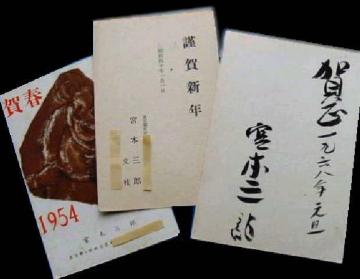 賀春
1954
宮本三郎
謹賀新年
昭和四十年一月一日
宮本三郎
文枝
賀正一九六八年元旦
宮本三郎